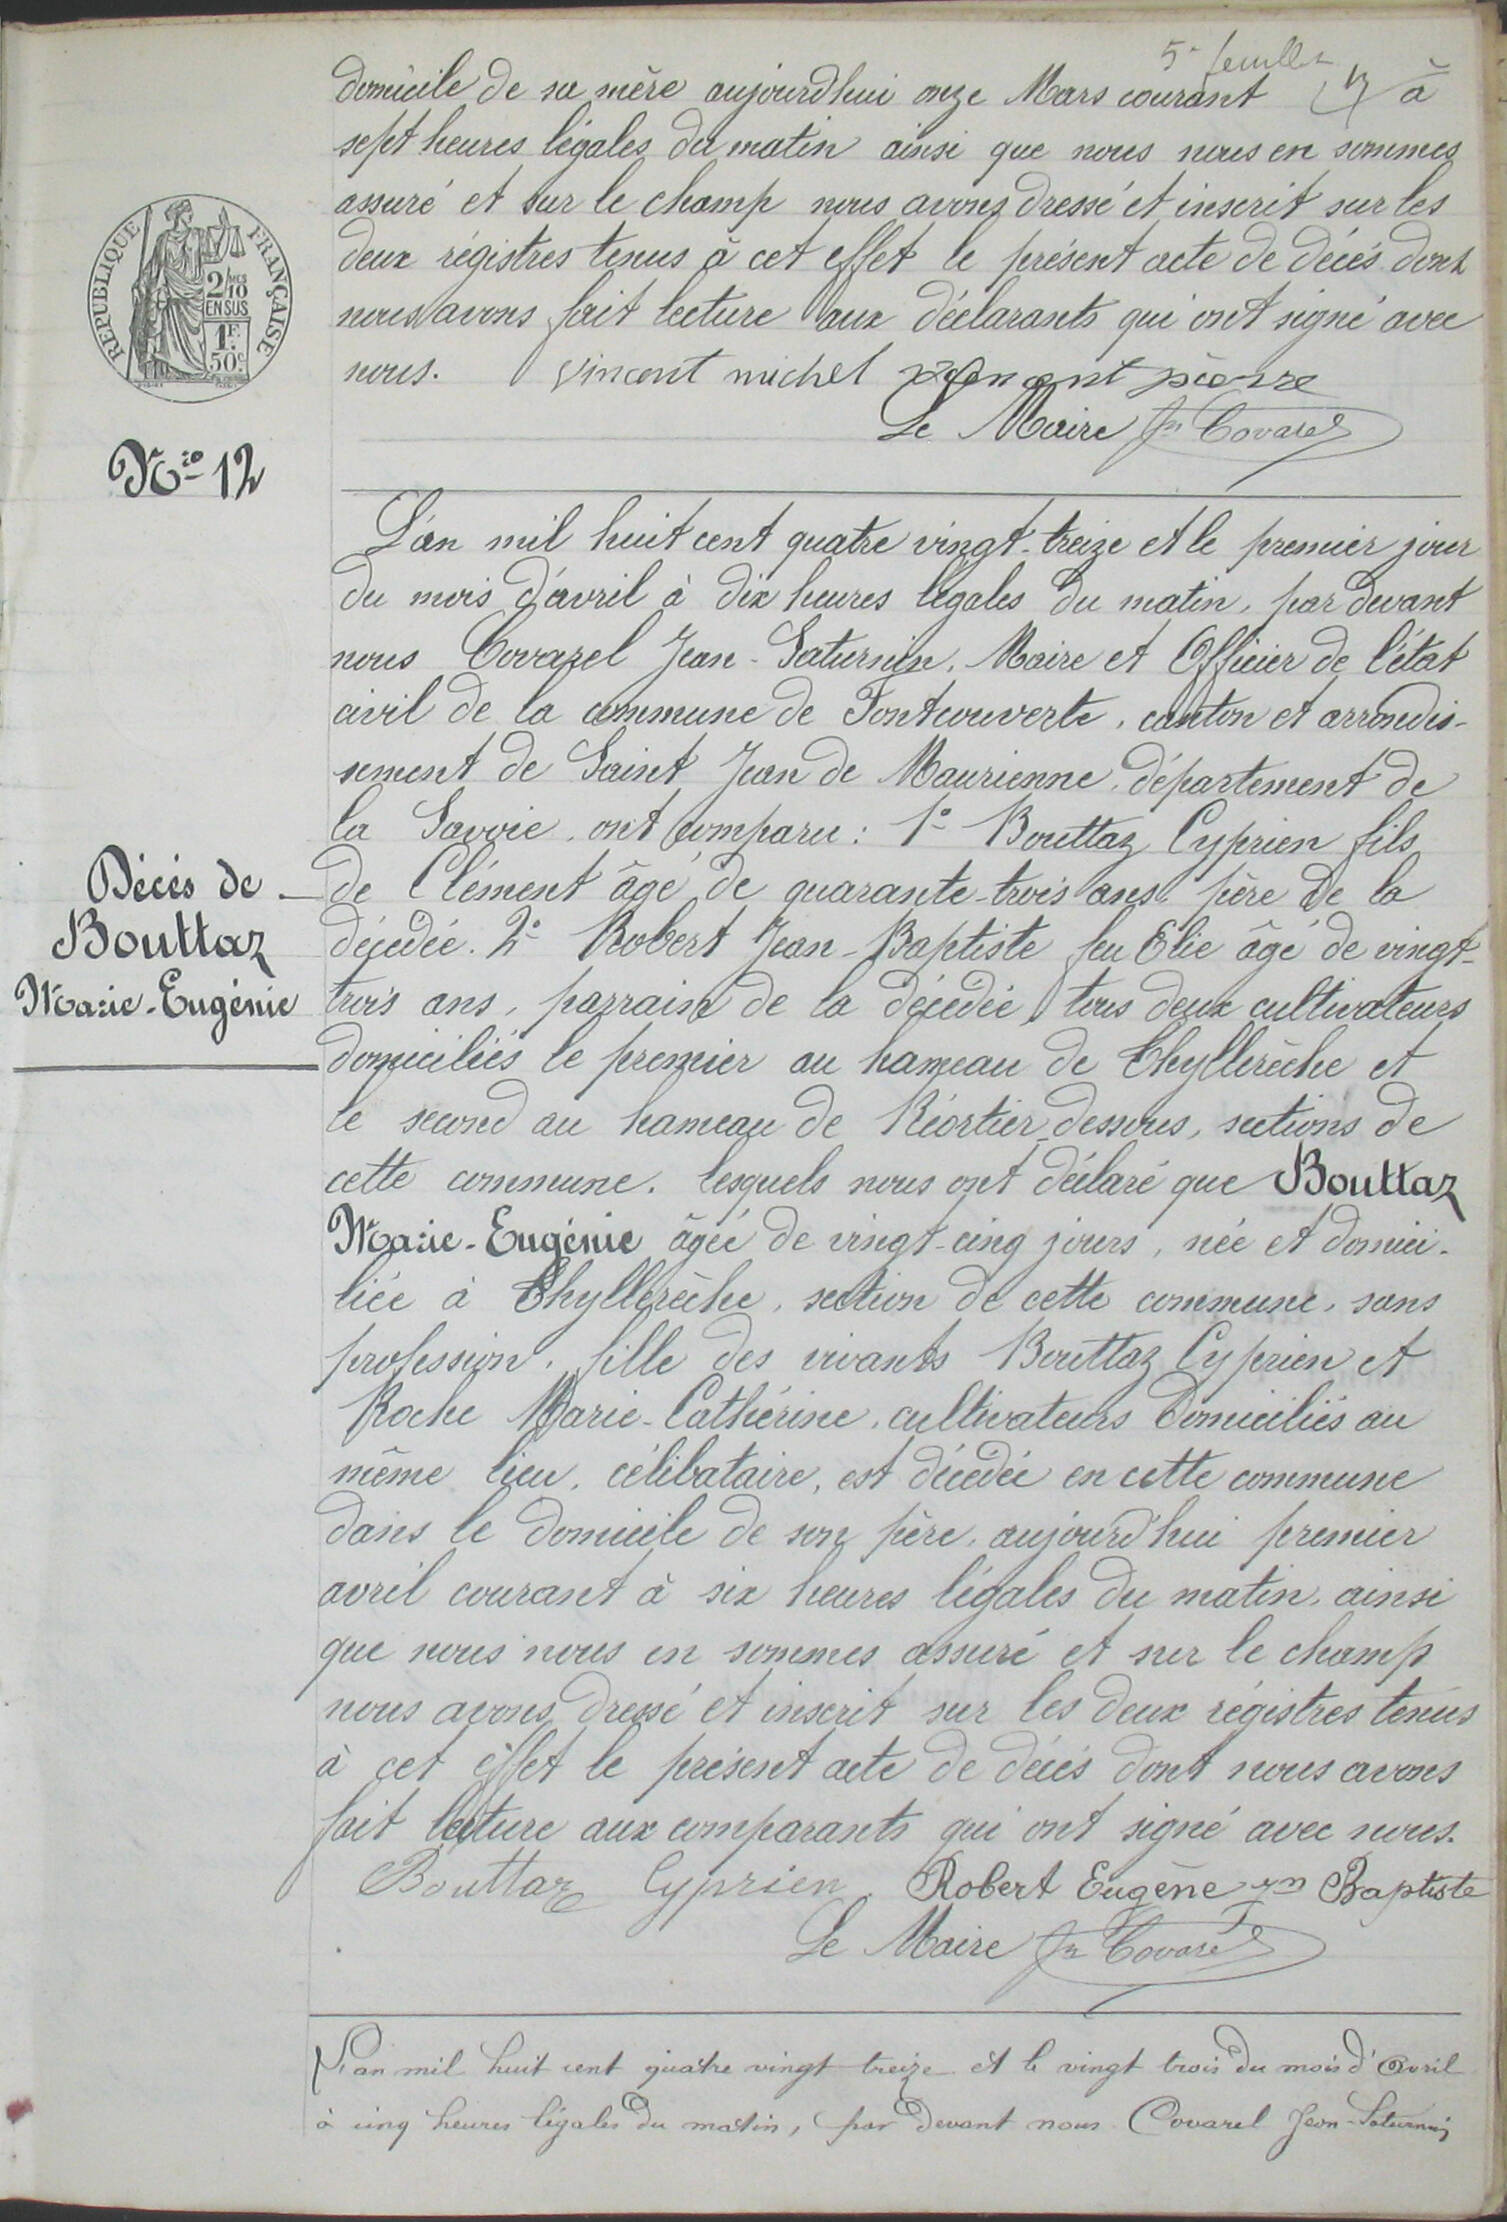 5e feuillet
domicile de sa mère aujourdhui onze Mars courant à
sept heures légales du matin ainsi que nous nous en sommes
assuré et sur le champ nous avons dressé et inscrit sur les
deux régistres tenus à cet effet le présent acte de décés dont
nous avons fait lecture aux déclarants qui ont signé avec
nous. vincent michel pierre
Le Maire Jn Covarel
RÉPUBLIQUE FRANÇAISE
2/10 MES
EN SUS
1F.
50c.
No 12
L'an mil huit cent quatre vingt-treize et le premier jour
du mois d'avril à dix heures légales du matin, par devant
nous Covarel Jean-Saturnin, Maire et Officier de l'état
civil de la commune de Fontcouverte, canton et arrondis-
sement de Saint Jean de Maurienne, département de
la Savoie, ont comparu : 1° Bouttaz Cyprien fils
Décés de
Bouttaz
Marie-Eugénie
de Clément âgé de quarante-trois ans, père de la
décédée. 2° Robert Jean-Baptiste feu Elie âgé de vingt-
trois ans, parrain de la décédée, tous deux cultivateurs
domiciliés le premier au hameau de Chyllerèche et
le second au hameau de Réortier-dessous, sections de
cette commune. lesquels nous ont déclaré que Bouttaz
Marie-Eugénie âgée de vingt-cinq jours, née et domici-
liée à Chyllerèche, section de cette commune, sans
profession, fille des vivants Bouttaz Cyprien et
Roche Marie-Cathérine, cultivateurs domiciliés au
même lieu, célibataire, est décédée en cette commune
dans le domicile de son père, aujourd'hui premier
avril courant à six heures légales du matin, ainsi
que nous nous en sommes assuré et sur le champ
nous avons dressé et inscrit sur les deux régistres tenus
à cet effet le présent acte de décés dont nous avons
fait lecture aux comparants qui ont signé avec nous.
Bouttaz Cyprien Robert Eugène Jn Baptiste
Le Maire Jn Covarel
L'an mil huit cent quatre vingt treize et le vingt trois du mois d'Avril
à cinq heures légales du matin, par devant nous Covarel Jean-Saturnin